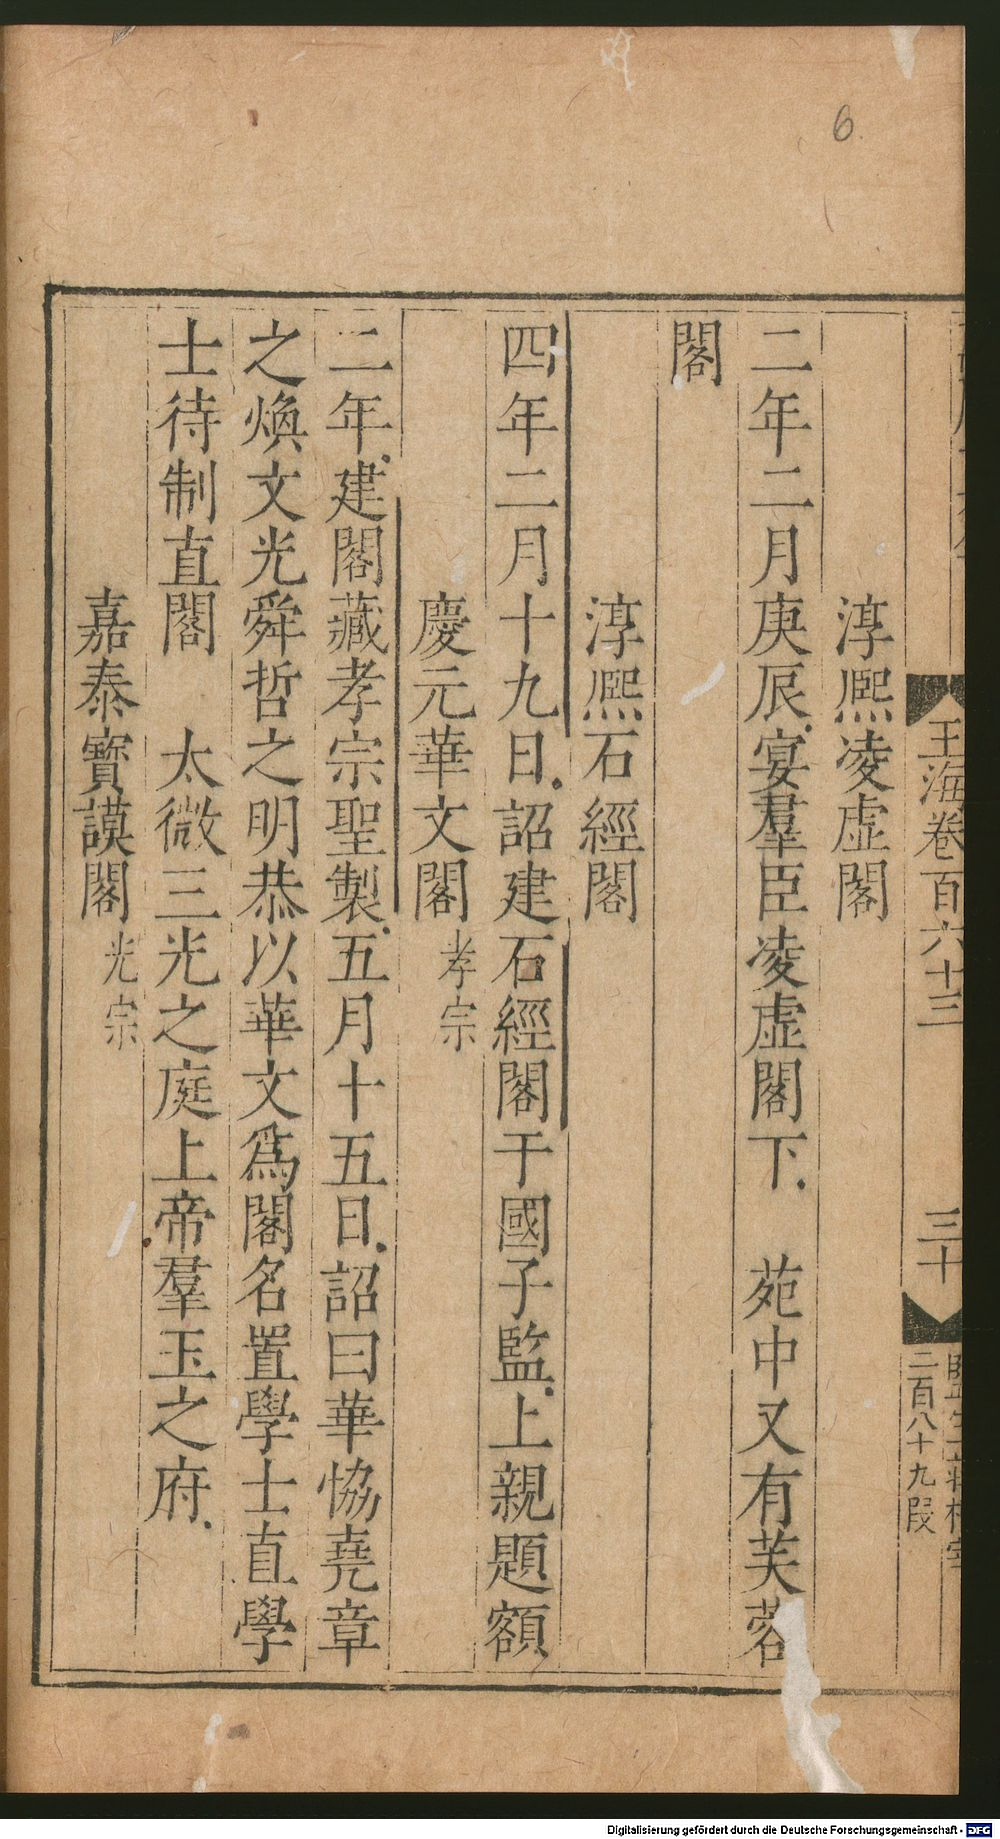 6
玉海卷百六十三
三十
二百八十九段
淳熈凌虚閣
二年二月庚辰宴羣臣凌虚閣下 苑中又有芙蓉
閣
淳熈石經閣
四年二月十九日詔建石經閣于國子監上親題額
慶元華文閣 孝宗
二年建閣藏孝宗聖製五月十五日詔曰華恊堯章
之煥文光舜哲之明恭以華文爲閣名置學士直學
士待制直閣 太微三光之庭上帝羣玉之府
嘉泰寶謨閣 光宗
Digitalisierung gefördert durch die Deutsche Forschungsgemeinschaft - DFG